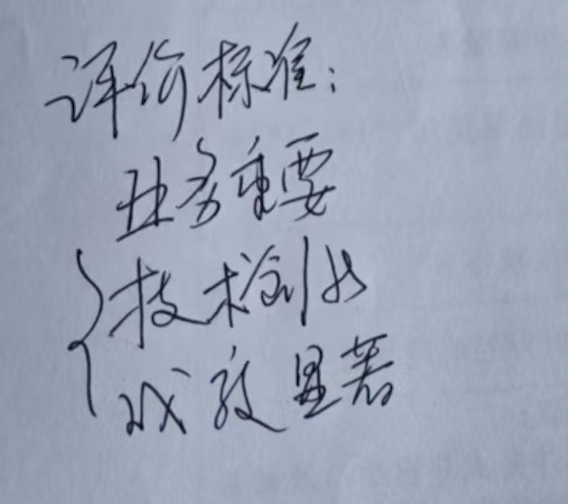 评价标准：
业务重要
技术创新
成效显著